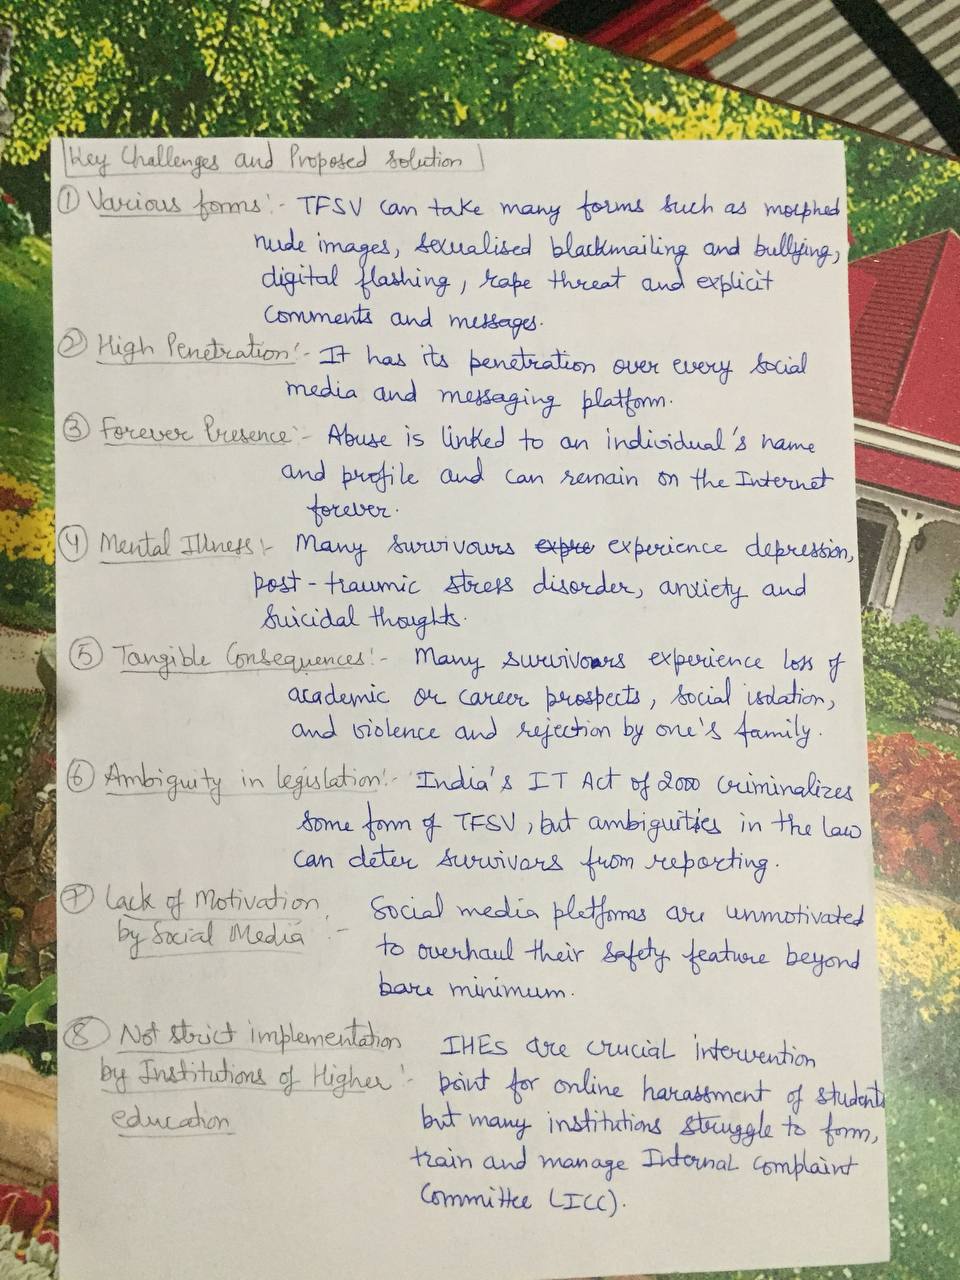 Key Challenges and Proposed Solution
① Various forms:- TFSV can take many forms such as morphed
nude images, sexualised blackmailing and bullying,
digital flashing, rape threat and explicit
comments and messages.
② High Penetration:- It has its penetration over every social
media and messaging platform.
③ Forever Presence:- Abuse is linked to an individual's name
and profile and can remain on the Internet
forever.
④ Mental Illness:- Many survivours expre experience depression,
post-traumic stress disorder, anxiety and
suicidal thoughts.
⑤ Tangible Consequences:- Many survivours experience loss of
academic or career prospects, social isolation,
and violence and rejection by one's family.
⑥ Ambiguity in legislation:- India's IT Act of 2000 criminalizes
some form of TFSV, but ambiguities in the law
can deter survivars from reporting.
⑦ Lack of Motivation Social media platforms are unmotivated
by Social Media :- to overhaul their safety feature beyond
bare minimum.
⑧ Not strict implementation IHEs are crucial intervention
by Institutions of Higher :- point for online harassment of students
education but many institutions struggle to form,
train and manage Internal Complaint
Committee (ICC).